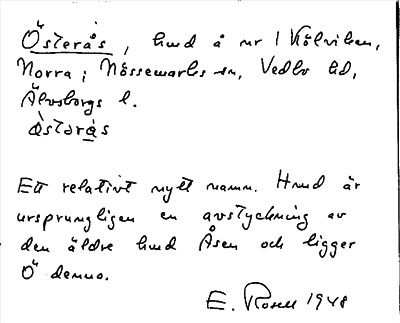 Österås, hmd å nr 1 Kölviken,
Norra; Nössemarks sn, Vedbo hd,
Älvsborgs l.
östərås
Ett relativt nytt namn. Hmd är
ursprungligen en avstyckning av
den äldre hmd Åsen och ligger
Ö denna.
E. Rosell 1948